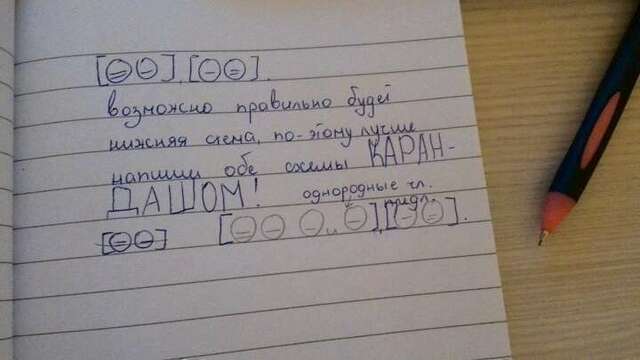 [⊜ ⊖], [⊖ ⊜].
возможно правильно будет
нижняя схема, по-этому лучше
напиши обе схемы КАРАН-
ДАШОМ! однородные чл.
предл.
[⊜ ⊖] [⊖ ⊖ ⊖ и ⊖], [⊖ ⊖].